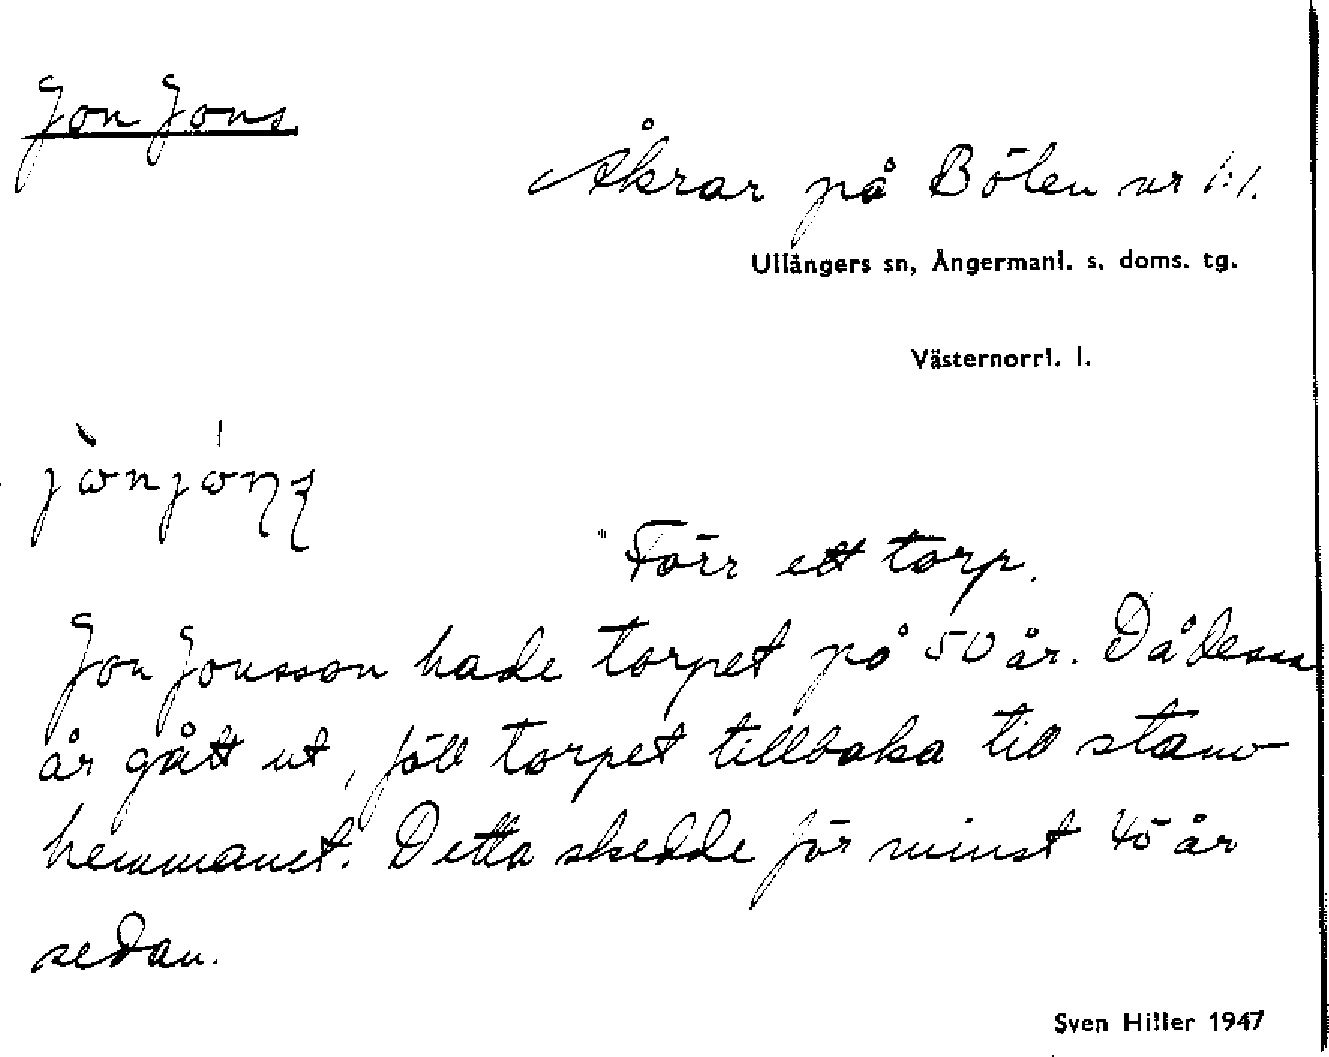 Jon Jons
Åkrar på Bölen nr 1:1.
Ullångers sn, Ångermanl. s. doms. tg.
Västernorrl. l.
"Förr ett torp.
Jon Jonsson hade torpet på 50 år. Då dessa
år gått ut, föll torpet tillbaka till stam-
hemmanet. Detta skedde för minst 45 år
sedan.
Sven Hiller 1947